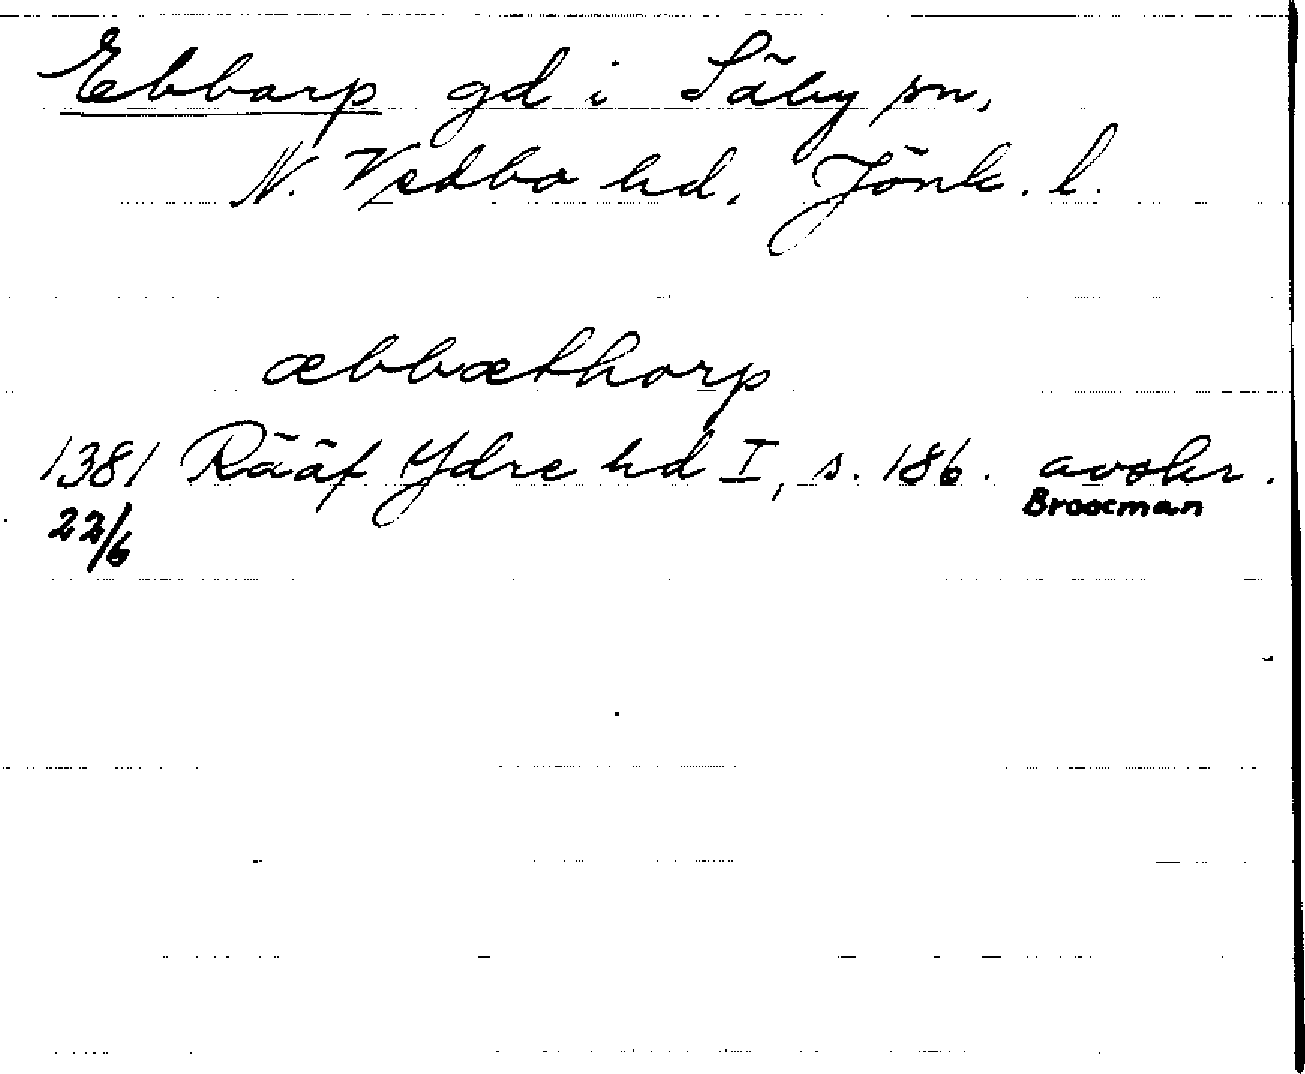 Ebbarp gd i Säby sn,
N. Vedbo hd. Jönk. l.
æbbæthorp
1381 Rääf Ydre hd I, s. 186. avskr.
22/6 Broocman